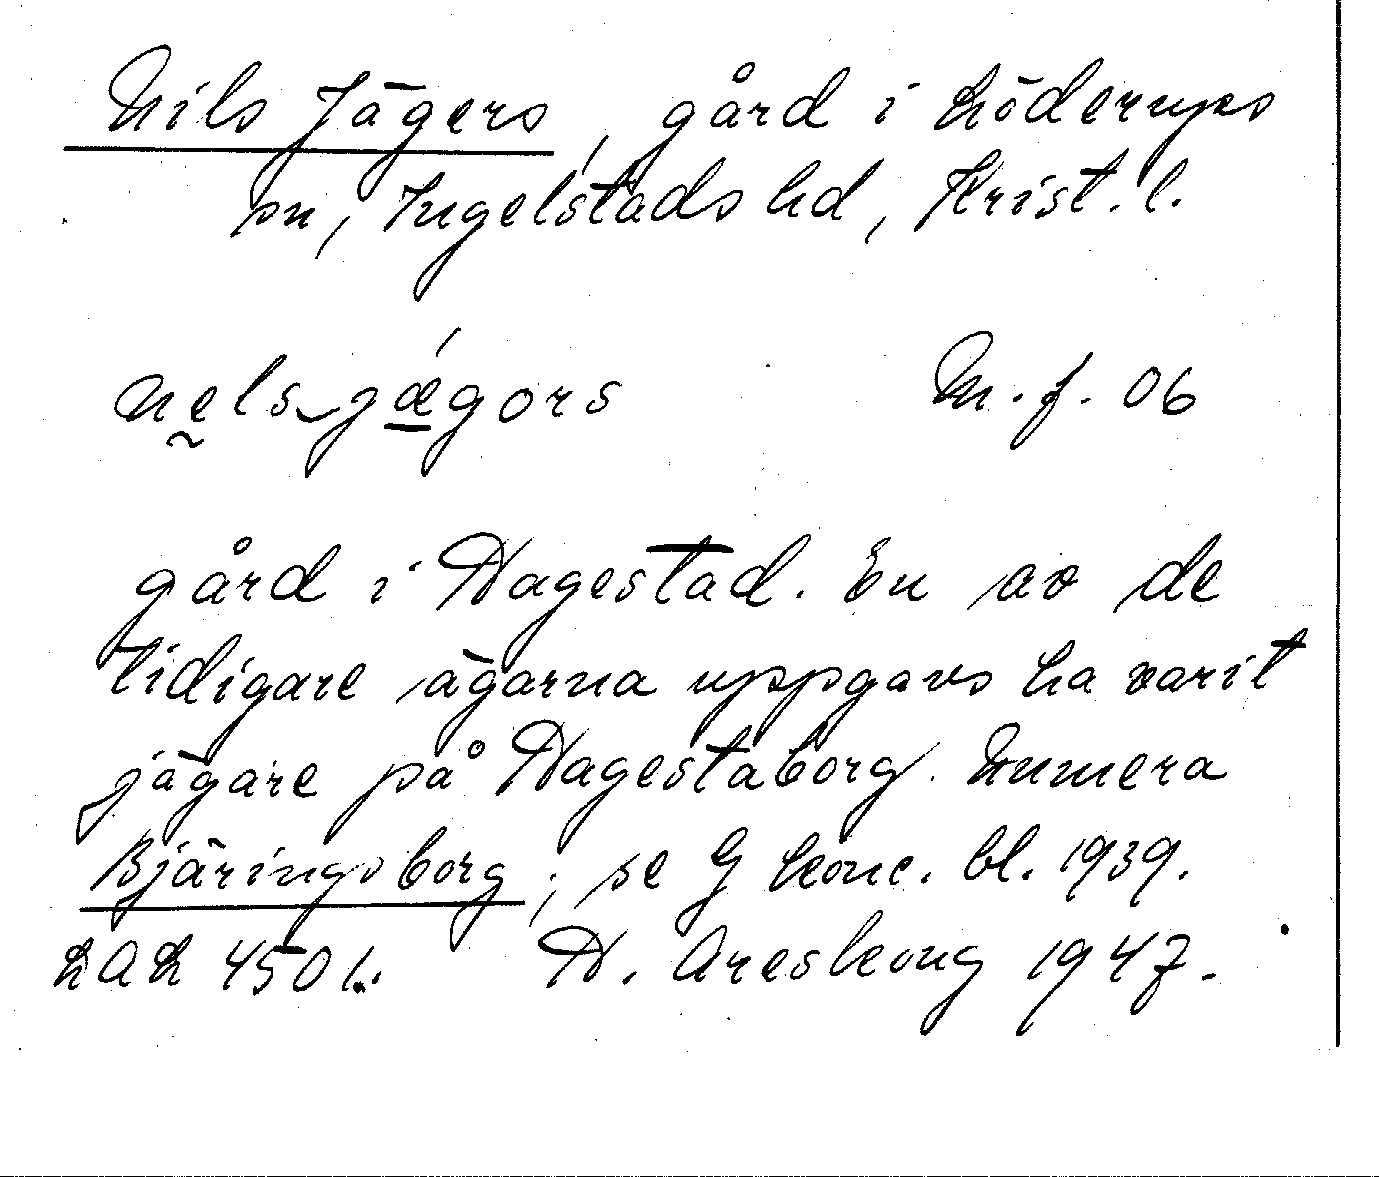 Nils Jägers, gård i Löderups
sn, Ingelstads hd, Krist. l.
nels jǽgors M. f. 06
gård i Hagestad. En av de
tidigare ägarna uppgavs ha varit
jägare på Hagestaborg. Numera
Bjäringsborg, se G konc. bl. 1939.
LAL 4501. H. Areskoug 1947.